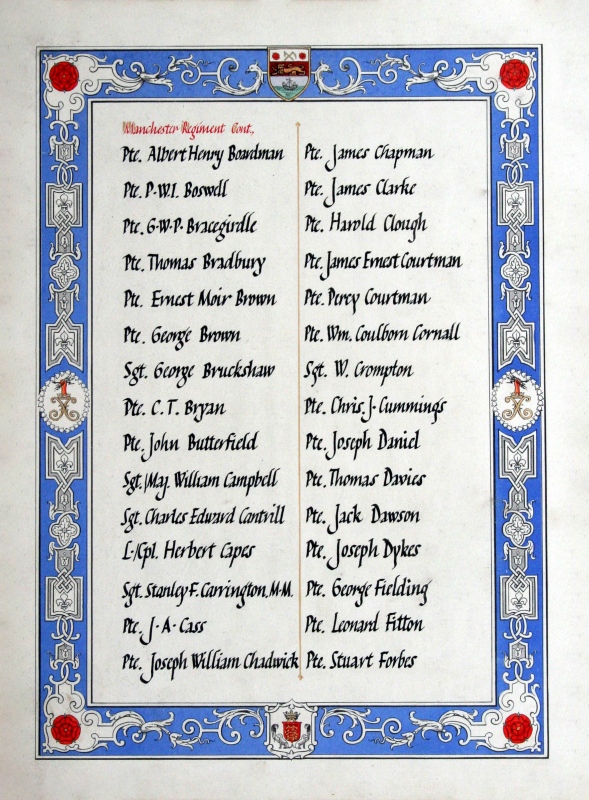 Manchester Regiment Cont.,
Pte. Albert Henry Boardman
Pte. P·W·I. Boswell
Pte. G·W·P· Bracegirdle
Pte. Thomas Bradbury
Pte. Ernest Moir Brown
Pte. George Brown
Sgt. George Bruckshaw
Pte. C.T. Bryan
Pte. John Butterfield
Sgt./Maj. William Campbell
Sgt. Charles Edward Cantrill
L-/Cpl. Herbert Capes
Sgt. Stanley F. Carrington, M·M.
Pte. J·A·Cass
Pte. Joseph William Chadwick
Pte. James Chapman
Pte. James Clarke
Pte. Harold Clough
Pte. James Ernest Courtman
Pte. Percy Courtman
Pte. Wm. Coulborn Cornall
Sgt. W. Crompton
Pte. Chris. J. Cummings
Pte. Joseph Daniel
Pte. Thomas Davies
Pte. Jack Dawson
Pte. Joseph Dykes
Pte. George Fielding
Pte. Leonard Fitton
Pte. Stuart Forbes